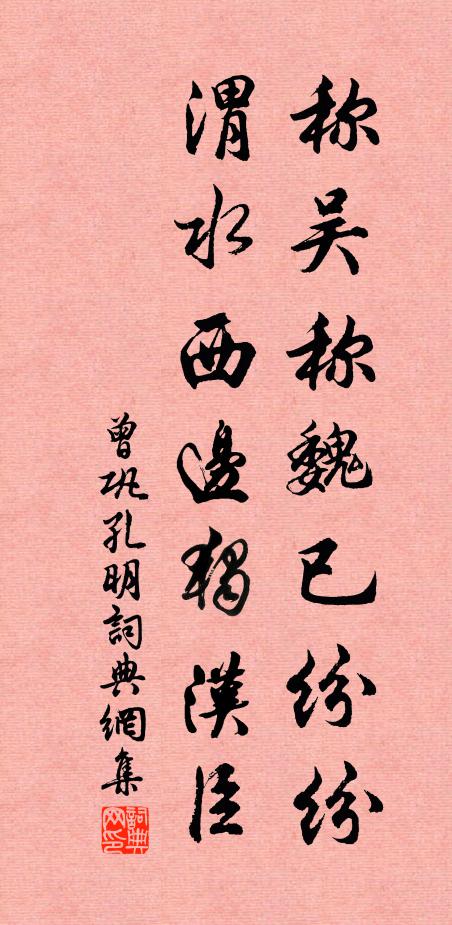 称吴称魏已纷纷
渭水西邊獨漢臣
曾巩孔明詞典網集
詞典
网印